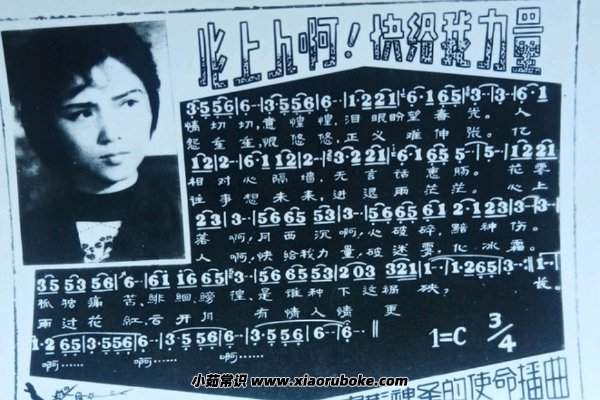 心上人啊！快给我力量
3·5556|6--|3·5556|6--|1·221|6·165|3--|3--|6·1
情切切,意惶惶,泪眼盼望春光。人
怨 恨悠悠,正义难伸张。忆
12|2--|6·1|12|2--|3·2|121|6·165|5-|5--|1221
相对心隔墙,无言话衷肠。花零
往事想未来,进退两茫茫。心上
23|3--|566553|5--|356561|2·123|3--
落啊,月西沉啊,心破碎,黯神伤。
人啊,快给我力量,破迷雾,化冰霜。
355356|6--|611665|3--|566553|203 321|1--|1·265|3--:|1--
孤独痛苦,徘徊彷徨,是谁种下这祸殃?
雨过花红,云开月 有情人情更 长。
1·265|3·556|6--|3·556|6--|3·556|6--|6--‖
啊…… 啊…… 啊……
1=C 3/4
神圣的使命插曲
小茹常识 www.xiaoruboke.com